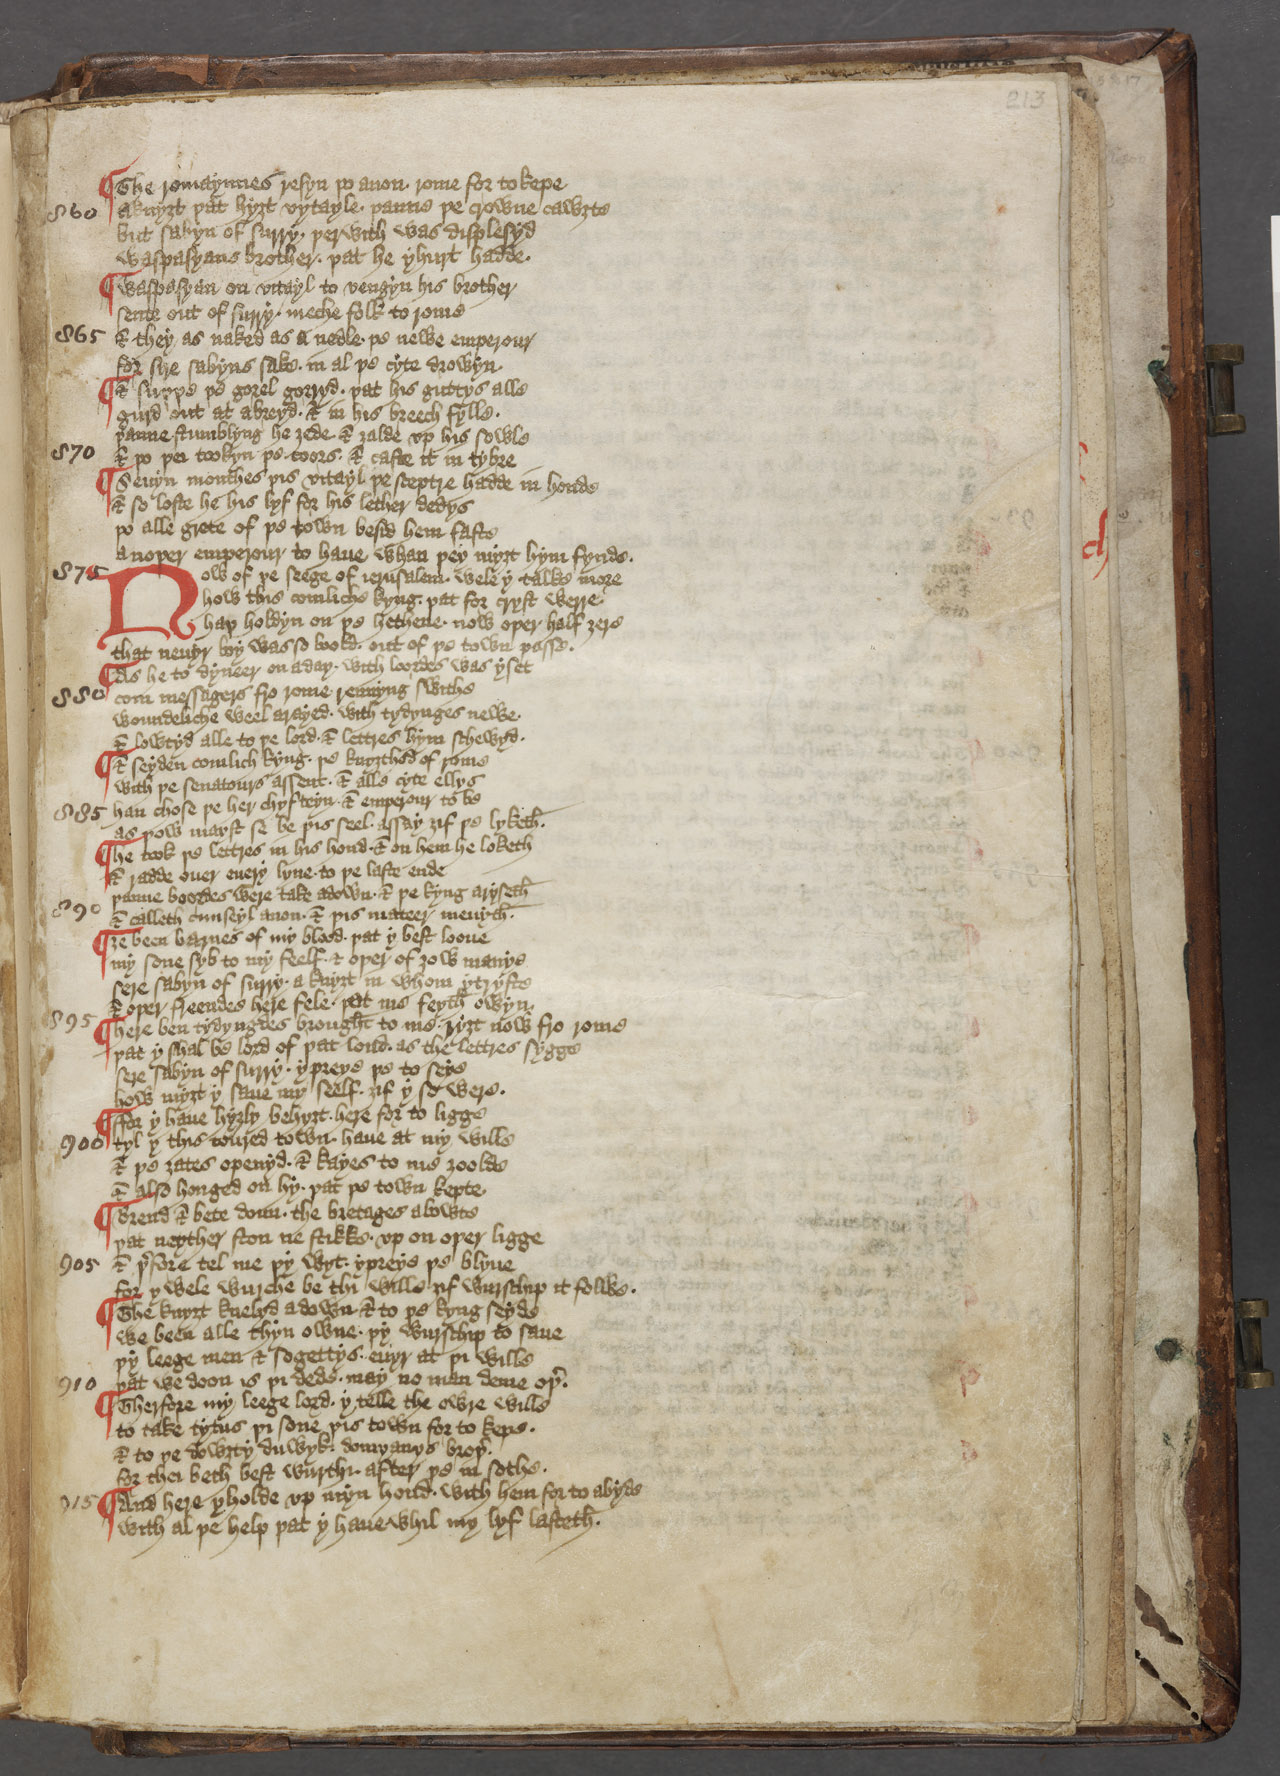 213
The romaynnes resyn þo anon · rome for to kepe
860 a knyȝt þat hyȝt vytayle · þanne þe crowne cawȝte
but sabyn of surry · þerwith was displesyd
waspasyans brother · þat he yhurt hadde ·
waspasyan on vitayl to vengyn his brother
sente out of surry · meche folk to rome
865 & they as naked as a nedle · þe newe emperour
for sire sabyns sake · in al þe cyte drowyn
& suþþe þe gorel gorryd · þat his guttys alle
gurd out at abreyd · & in his breech fylle ·
þanne stumblyng he ȝede & ȝalde vp his sowle
870 & þo þei tookyn þe coors · & caste it in tybre
Seuyn monthes þis vitayl þe sceptre hadde in honde
& so loste he his lyf for his lether dedys
þo alle grete of þe town besid hem faste
anoþer emperour to haue whan þey myȝt hym fynde ·
875 Now of þe seege of ierusalem · wele y talke more
how this comliche kyng · þat for cryst werre
haþ holdyn on þe hethene · now oþer half ȝere
that neuyr boy was so boold · out of þe town passe ·
As he to dyneer on a day · with loordes was yset
880 com messagers fro rome rennyng swithe
woundeliche weel arayed · with tydynges newe ·
& lowtyd alle to þe lord · & lettres hym schewyd ·
& seyden comlich kyng · þe knyȝthed of rome
with þe senatours assent · & alle cyte ellys
885 han chose þe her chyfteyn · & emperour to be
as þow mayst se be þis seel · assay ȝif þe lyketh ·
he took þe lettres in his hond · & on hem he loketh
& radde ouer euery lyne · to þe laste ende
þanne boordes were take adown · & þe kyng aryseth
890 & calleth cunseyl anon · & þis mateer menyth ·
ȝe been barnes of my blood · þat y best looue
my sone syb to my seelf · & oþer of ȝow manye
sere sabyn of surry · a knyȝt in whom y tryste
& oþer freendes here fele · þat me feyth owyn ·
895 here ben tydyngdes brought to me · ryȝt now fro rome
þat y schal be lord of þat lond · as the lettres sygge
sere sabyn of surry · y preye þe to seye
how myȝt y saue my seelf · ȝif y so were ·
ffor y haue hyȝly behyȝt · here for to ligge
900 tyl y this toured town · haue at my wille
& þe ȝates openyd · & kayes to me ȝoolde
& also honged on hy · þat þe town kepte
Brend & bete doun · the bretages abowte
þat neyther ston ne stikke · vp on oþer ligge
905 & þerfore tel me þy wyt · y preye þe blyue
for y wele wurche be thi wille · ȝif wurschip it folwe ·
The knyȝt knelyd adown · & to þe kyng seyde
we been alle thyn owne · þy wurschip to saue
þy leege men & sogettys · euyr at þi wille
910 þat we doon is þi dede · may no man deme oþer ·
Therfore my leege lord · y telle the owre wille
to take tytus þi sone þis town for to kepe ·
& to þe dowȝty duwyk · domyanys broþer ·
for thei beth best wurthi · after þe in sothe ·
915 And here y holde vp myn hond · with hem for to abyde
with al þe help þat y haue whil my lyf lasteth ·